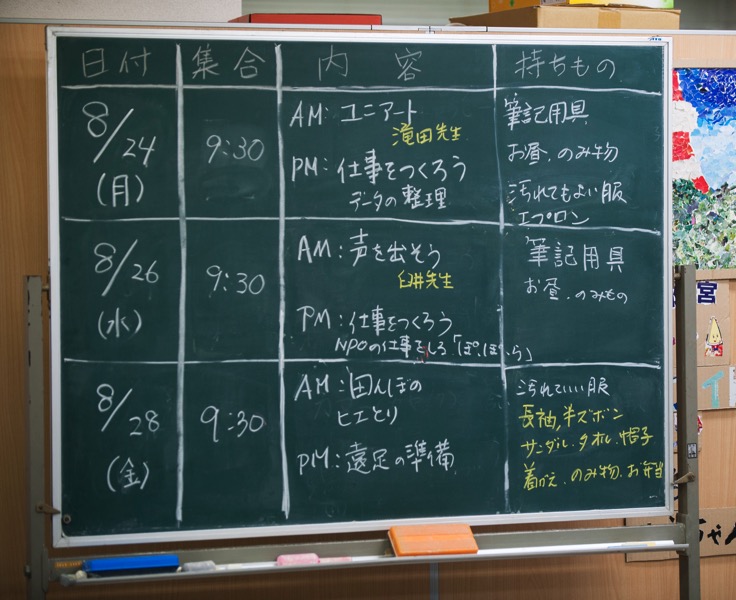 日付 集合 内容 持ちもの
8/24
(月)
9:30
AM: ユニアート
滝田先生
PM: 仕事をつくろう
データの整理
筆記用具
お昼、のみ物
汚れてもよい服
エプロン
8/26
(水)
9:30
AM: 声を出そう
臼井先生
PM: 仕事をつくろう
NPOの仕事をしろ「ぽ、ぽ、ら」
筆記用具
お昼、のみもの
8/28
(金)
9:30
AM: 田んぼの
ヒエとり
PM: 遠足の準備
汚れていい服
長袖,半ズボン
サンダル、タオル、帽子
着がえ、のみ物、お弁当
宮
ちゃん